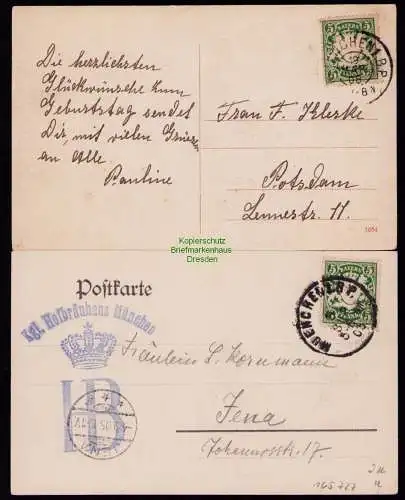 Die herzlichsten
Glückwünsche zum
Geburtstag sendet
Dir, mit vielen Grüssen
an Alle
Pauline
BAYERN
Frau F. Klerke
Potsdam
Lennestr. 11.
Kopierschutz
Briefmarkenhandel
Dresden
Postkarte
Kgl. Hofbräuhaus München
HB
MUENCHEN
BAYERN
Fräulein L. Kornmann
Jena
JENA
Johannisstr. 17.
165727